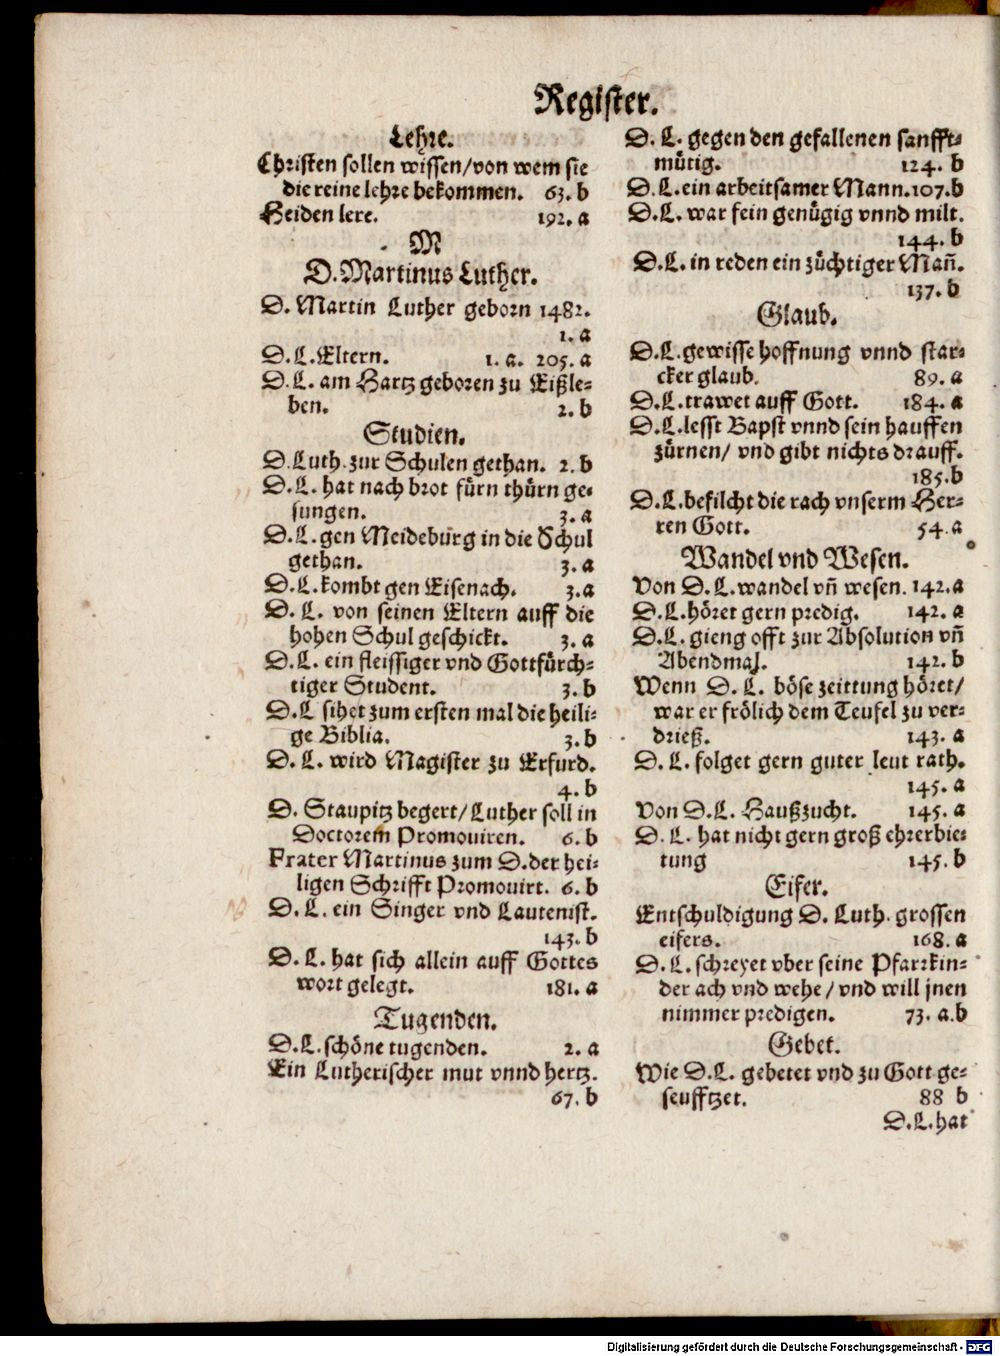 Register.
Lehre.
Christen sollen wissen/von wem sie
die reine lehre bekommen. 63. b
Heiden lere. 192. a
M
D. Martinus Luther.
D. Martin Luther geborn 1482.
1. a
D. L. Eltern. 1. a. 205. a
D. L. am Hartz geboren zu Eißle-
ben. 2. b
Studien.
D. Luth. zur Schulen gethan. 2. b
D. L. hat nach brot fürn thürn ge-
sungen. 3. a
D. L. gen Meideburg in die Schul
gethan. 3. a
D. L. kombt gen Eisenach. 3. a
D. L. von seinen Eltern auff die
hohen Schul geschickt. 3. a
D. L. ein fleissiger vnd Gottfürch-
tiger Student. 3. b
D. L sihet zum ersten mal die heili-
ge Biblia. 3. b
D. L. wird Magister zu Erfurd.
4. b
D. Staupitz begert/Luther soll in
Doctorem Promouiren. 6. b
Frater Martinus zum D. der hei-
ligen Schrifft Promouirt. 6. b
D. L. ein Singer vnd Lautenist.
143. b
D. L. hat sich allein auff Gottes
wort gelegt. 181. a
Tugenden.
D. L. schöne tugenden. 2. a
Ein Lutherischer mut vnnd hertz.
67. b
D. L. gegen den gefallenen sanfft-
mütig. 124. b
D. L. ein arbeitsamer Mann. 107. b
D. L. war fein genügig vnnd milt.
144. b
D. L. in reden ein züchtiger Mañ.
137. b
Glaub.
D. L. gewisse hoffnung vnnd star-
cker glaub. 89. a
D. L. trawet auff Gott. 184. a
D. L. lesst Bapst vnnd sein hauffen
zürnen/ vnd gibt nichts drauff.
185. b
D. L. befilcht die rach vnserm Her-
ren Gott. 54. a
Wandel vnd Wesen.
Von D. L. wandel vñ wesen. 142. a
D. L. höret gern predig. 142. a
D. L. gieng offt zur Absolution vñ
Abendmal. 142. b
Wenn D. L. böse zeittung höret/
war er frölich dem Teufel zu ver-
drieß. 143. a
D. L. folget gern guter leut rath.
145. a
Von D. L. Haußzucht. 145. a
D. L. hat nicht gern groß ehrerbie-
tung 145. b
Eifer.
Entschuldigung D. Luth. grossen
eifers. 168. a
D. L. schreyet vber seine Pfarrkin-
der ach vnd wehe/vnd will jnen
nimmer predigen. 73. a. b
Gebet.
Wie D. L. gebetet vnd zu Gott ge-
seufftzet. 88 b
D. L. hat
Digitalisierung gefördert durch die Deutsche Forschungsgemeinschaft - DFG